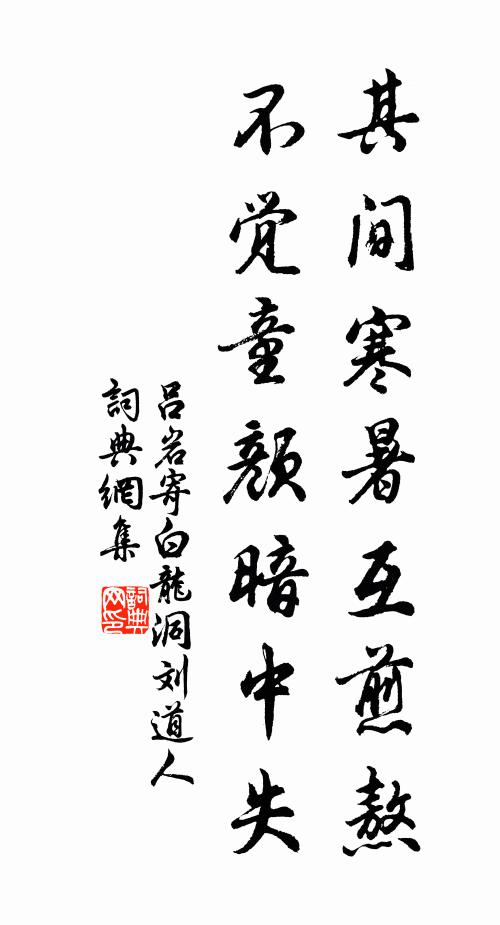 其间寒暑互煎熬
不觉童颜暗中失
吕岩寄白龍洞刘道人
詞典網集
詞典网印